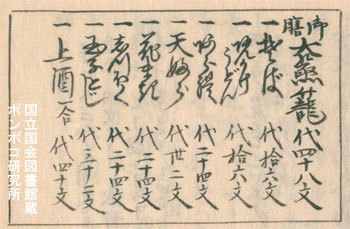 御膳 大蒸籠 代四十八文
一 そば 代拾六文
一 あんかけうどん 代拾六文
一 あられ 代二十四文
一 天ぷら 代卅二文
一 花まき 代二十四文
一 しつぽく 代二十四文
一 玉子とじ 代三十二文
一 上酒一合 代四十文
国立国会図書館蔵
ポンポコ研究所